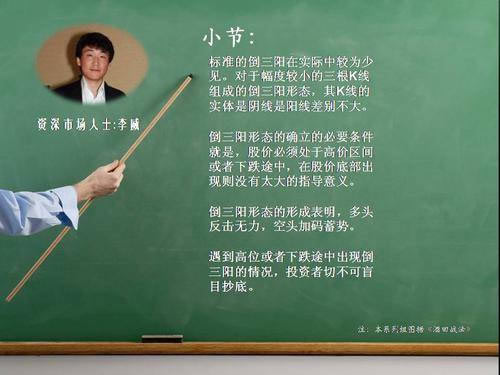 小节：
标准的倒三阳在实际中较为少
见。对于幅度较小的三根K线
组成的倒三阳形态，其K线的
实体是阴线是阳线差别不大。
倒三阳形态的确立的必要条件
就是，股价必须处于高价区间
或者下跌途中，在股价底部出
现则没有太大的指导意义。
倒三阳形态的形成表明，多头
反击无力，空头加码蓄势。
遇到高位或者下跌途中出现倒
三阳的情况，投资者切不可盲
目抄底。
资深市场人士:李威
注：本系列组图据《酒田战法》